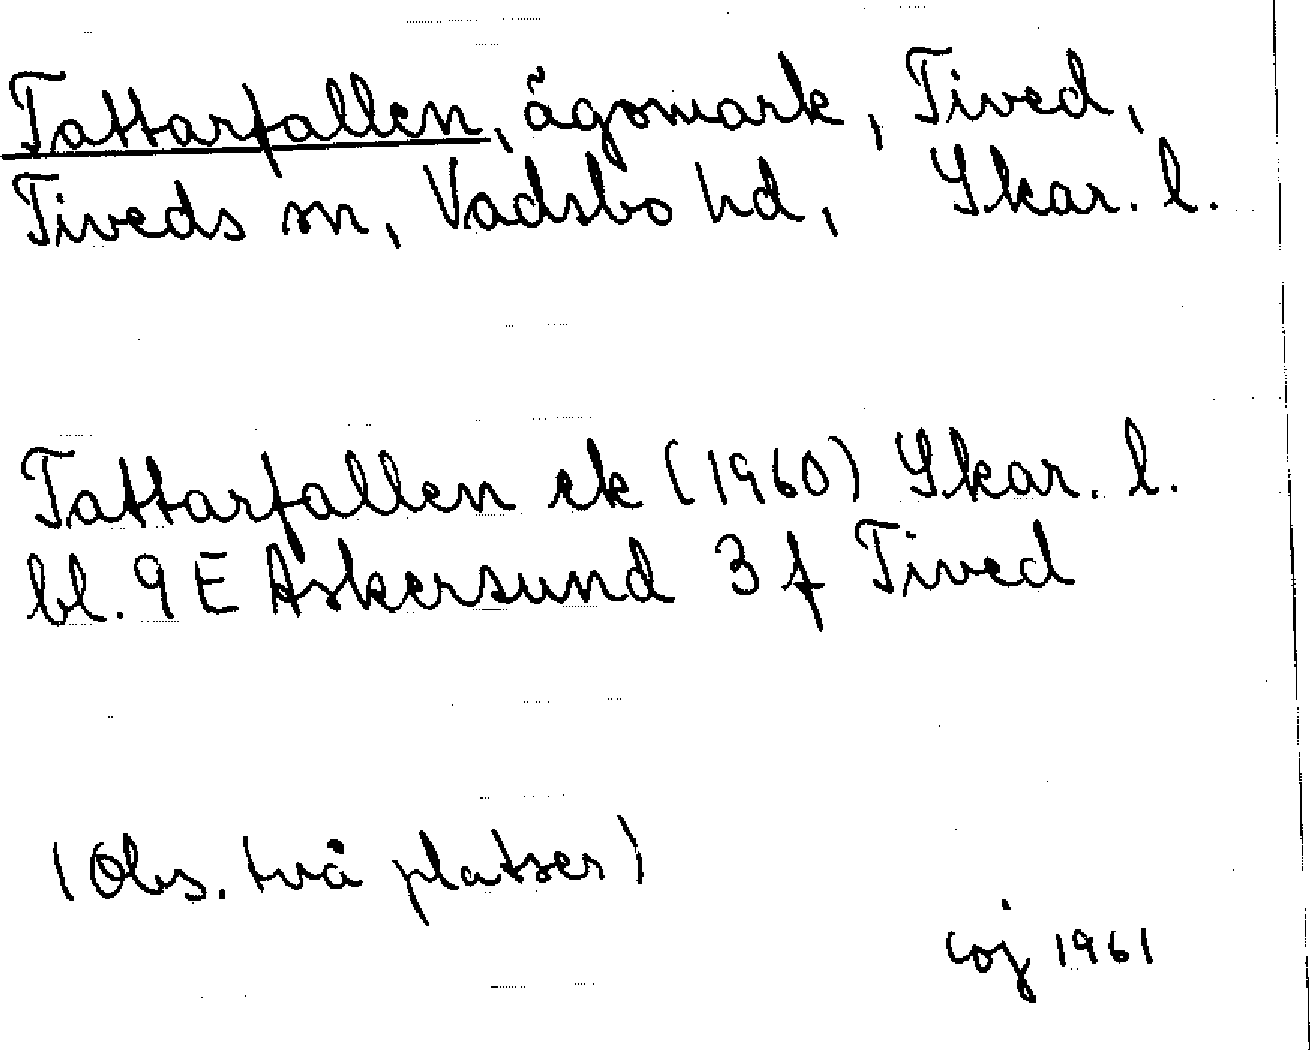 Tattarfallen, ägomark, Tived,
Tiveds sn, Vadsbo hd, Skar. l.
Tattarfallen ek (1960) Skar. l.
bl. 9E Askersund 3 f Tived
(Obs. två platser)
coj 1961